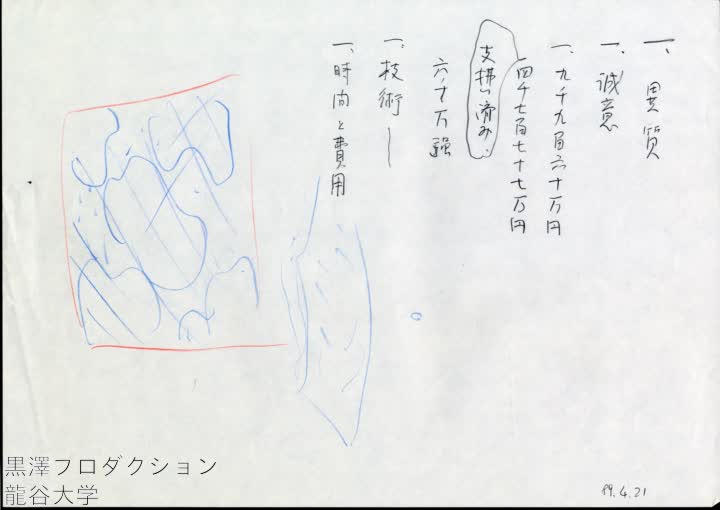 一、異質
一、誠意
一、九千九百六十万円
四千七百七十七万円
支拂い済み.
六、十万強
一、技術ー
一、時間と費用
黒澤フロダクション
龍谷大学
89.4.21